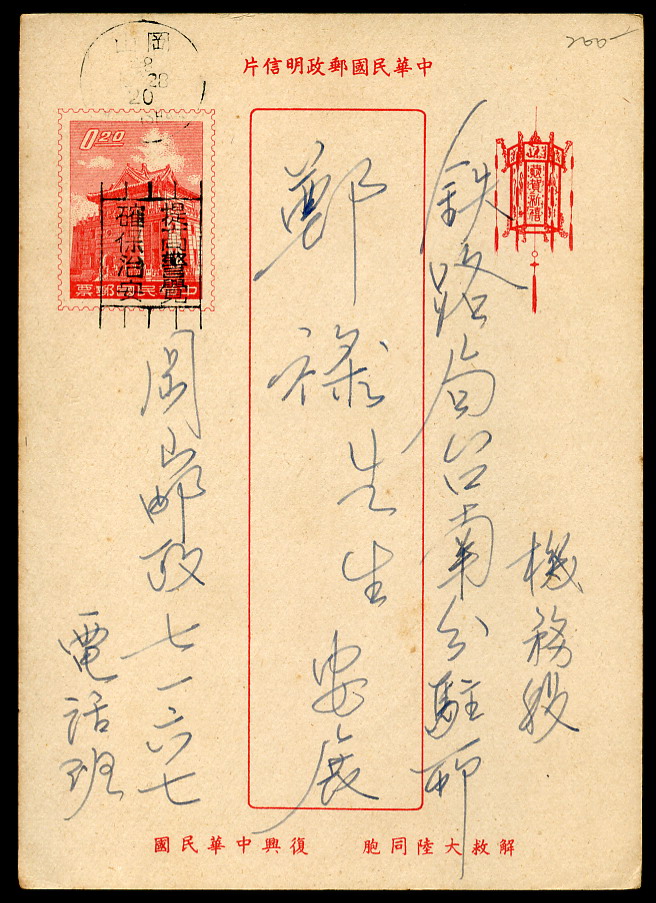 中華民國郵政明信片
200
岡山
28
20
0.20
中華民國郵票
提高警覺
確保治安
恭賀新禧
機務段
鉄路局台南分駐所
鄭祿先生 安展
岡山郵政七一六七
電話班
解救大陸同胞 復興中華民國